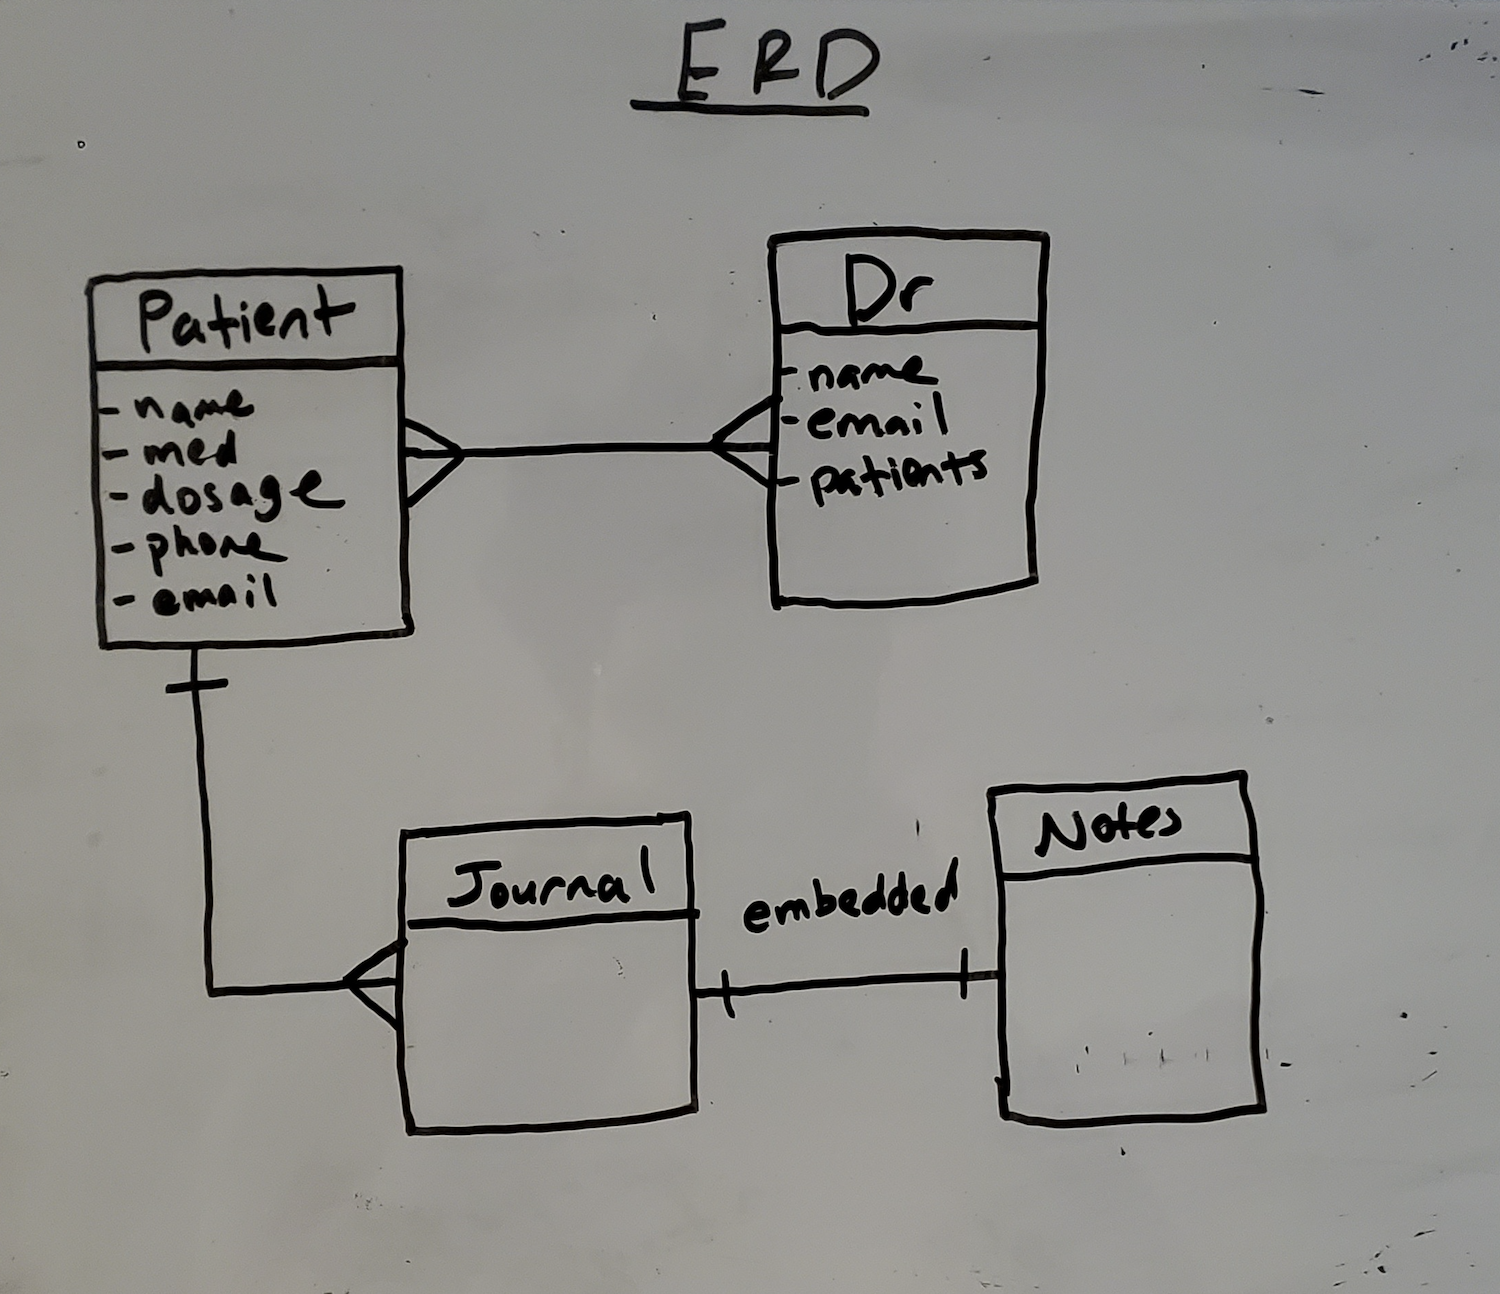 ERD
Patient
- name
- med
- dosage
- phone
- email
Dr
- name
- email
- patients
Journal
embedded
Notes